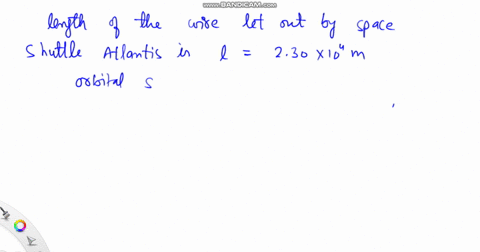 www.BANDICAM.COM
length of the wire let out by space
Shuttle Atlantis is l = 2.30 × 10⁴ m
orbital s